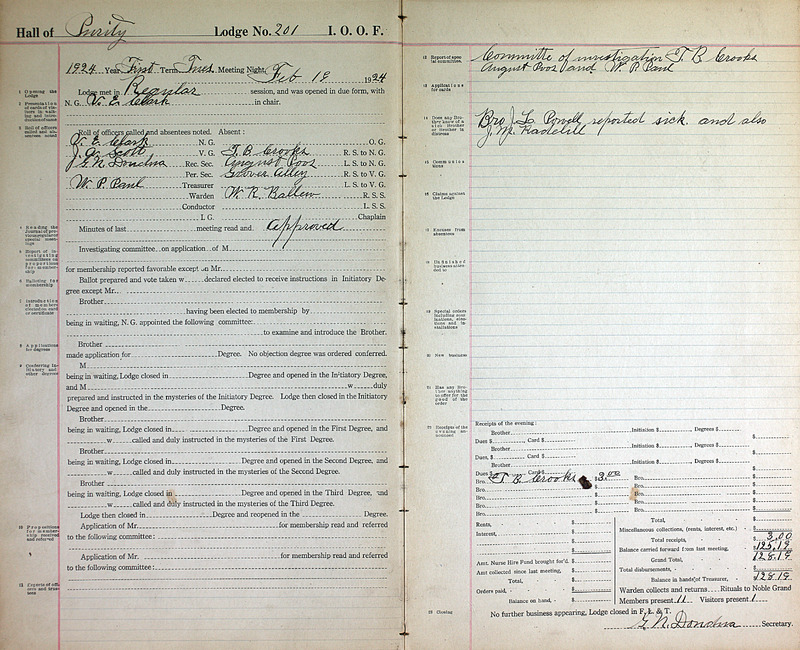 Hall of Purity Lodge No. 201 I. O. O. F.
1924 Year, First Term, Tues. Meeting Night, Feb 19 1924
Lodge met in Regular session, and was opened in due form, with
N. G. V. E. Clark in chair.
Roll of officers called and absentees noted. Absent:
V. E. Clark N. G. O. G.
J. A. Scott V. G. T. B. Crooks R. S. to N. G.
G. N. Donchna Rec. Sec. August Poos L. S. to N. G.
Per. Sec. Grover Alley R. S. to V. G.
W. P. Paul Treasurer L. S. to V. G.
Warden W. R. Ballew R. S. S.
Conductor L. S. S.
I. G. Chaplain
Minutes of last meeting read and approved
Investigating committee on application of M
for membership reported favorable except on Mr.
Ballot prepared and vote taken w declared elected to receive instructions in Initiatory De-
gree except Mr.
Brother
having been elected to membership by
being in waiting, N. G. appointed the following committee:
to examine and introduce the Brother.
Brother
made application for Degree. No objection degree was ordered conferred.
M
being in waiting, Lodge closed in Degree and opened in the Initiatory Degree,
and M w duly
prepared and instructed in the mysteries of the Initiatory Degree. Lodge then closed in the Initiatory
Degree and opened in the Degree.
Brother
being in waiting, Lodge closed in Degree and opened in the First Degree, and
w called and duly instructed in the mysteries of the First Degree.
Brother
being in waiting, Lodge closed in Degree and opened in the Second Degree, and
w called and duly instructed in the mysteries of the Second Degree.
Brother
being in waiting, Lodge closed in Degree and opened in the Third Degree, and
w called and duly instructed in the mysteries of the Third Degree.
Lodge then closed in Degree and reopened in the Degree.
Application of Mr. for membership read and referred
to the following committee:
Application of Mr. for membership read and referred
to the following committee:
1 Opening the Lodge
3 Roll of officers called and absentees noted
6 Balloting for membership
8 Applications for degrees
9 Conferring Initiatory and other degrees
10 Propositions for membership received and referred
12 Report of special committee.
Committee of investigation T. B. Crooks
August Poos and W. P. Paul
13 Applications for cards
14 Does any Brother know of a sick Brother or Brother in distress
Bro J. L. Powell reported sick and also
J. M. Radelill
15 Communications
16 Claims against the Lodge
17 Excuses from absentees
18 Unfinished business
20 New business
21 Has any Brother anything to offer for the good of the order
22 Receipts of the evening announced
Receipts of the evening:
Brother Initiation $ Degrees $
Dues $ Card $ $
Brother Initiation $ Degrees $
Dues, $ Card $ $
Brother Initiation $ Degrees $
Dues $ Card $ $
Bro. T. B. Crooks $ 3.00 Bro. $
Bro. $ Bro. $
Bro. $ Bro. $
Bro. $ Bro. $
Bro. $ Bro. $
Rents, $ Total, $
Interest, $ Miscellaneous collections, (rents, interest, etc.) $
Total receipts, $ 3.00
Balance carried forward from last meeting, $ 125.19
Amt. Nurse Hire Fund brought for'd. $ Grand Total, $ 128.19
Amt collected since last meeting, $ Total disbursements, $
Total, $ Balance in hands of Treasurer, $ 128.19
Orders paid, $ Warden collects and returns Rituals to Noble Grand
Balance on hand, $ Members present 11 Visitors present 1
23 Closing
No further business appearing, Lodge closed in F., L. & T.
G. N. Donchna Secretary.